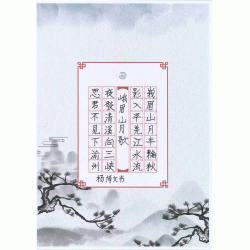 峩眉山月半輪秋
影入平羌江水流
【峨眉山月歌】
夜發清溪向三峽
思君不見下渝州
杨博文书